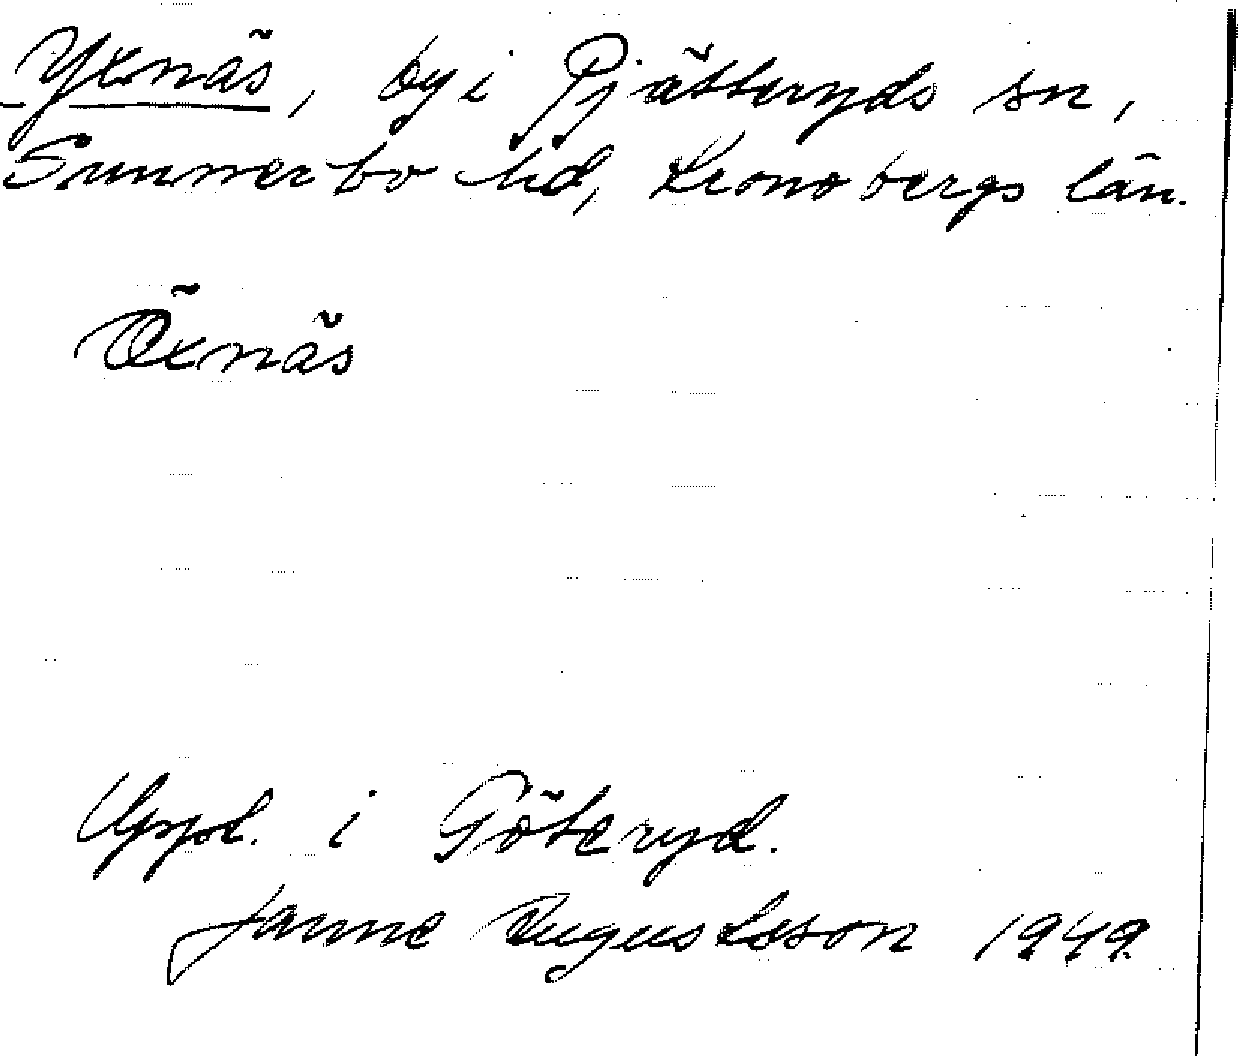 Yxnäs, by i Pjätteryds sn,
Sunnerbo hd, Kronobergs län.
Öxnäs
Uppt. i Göteryd.
Janne Augustsson 1949.